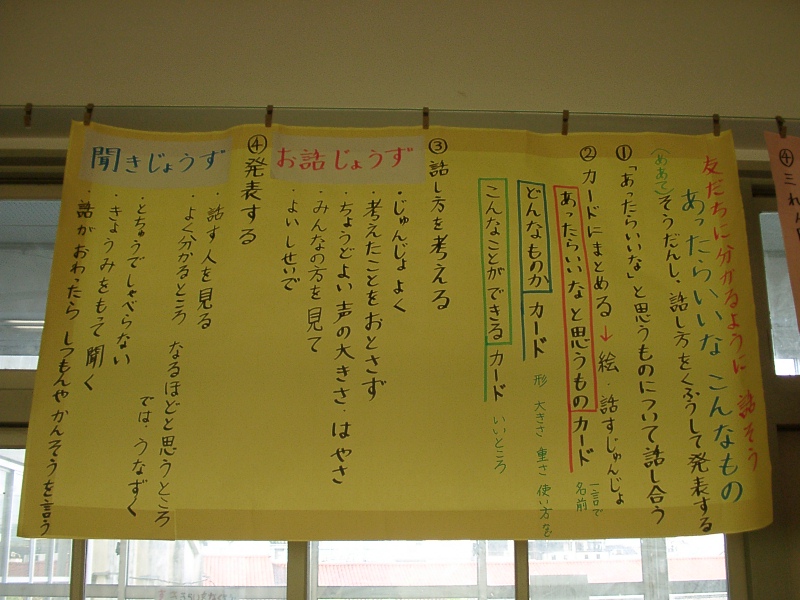 友だちに分かるように 話そう
あったらいいな こんなもの
(めあて)そうだんし、話し方をくふうして発表する
①「あったらいいな」と思うものについて話し合う
②カードにまとめる → 絵・話すじゅんじょ
あったらいいなと思うものカード 一言で 名前
どんなものかカード 形 大きさ 重さ 使い方など
こんなことができるカード いいところ
③話し方を考える
お話じょうず
・じゅんじょよく
・考えたことをおとさず
・ちょうどよい声の大きさ・はやさ
・みんなの方を見て
・よいしせいで
④発表する
聞きじょうず
・話す人を見る
・よく分かるところ なるほどと思うところ
では、うなずく
・とちゅうでしゃべらない
・きょうみをもって聞く
・話がおわったら しつもんやかんそうを言う
④三れ